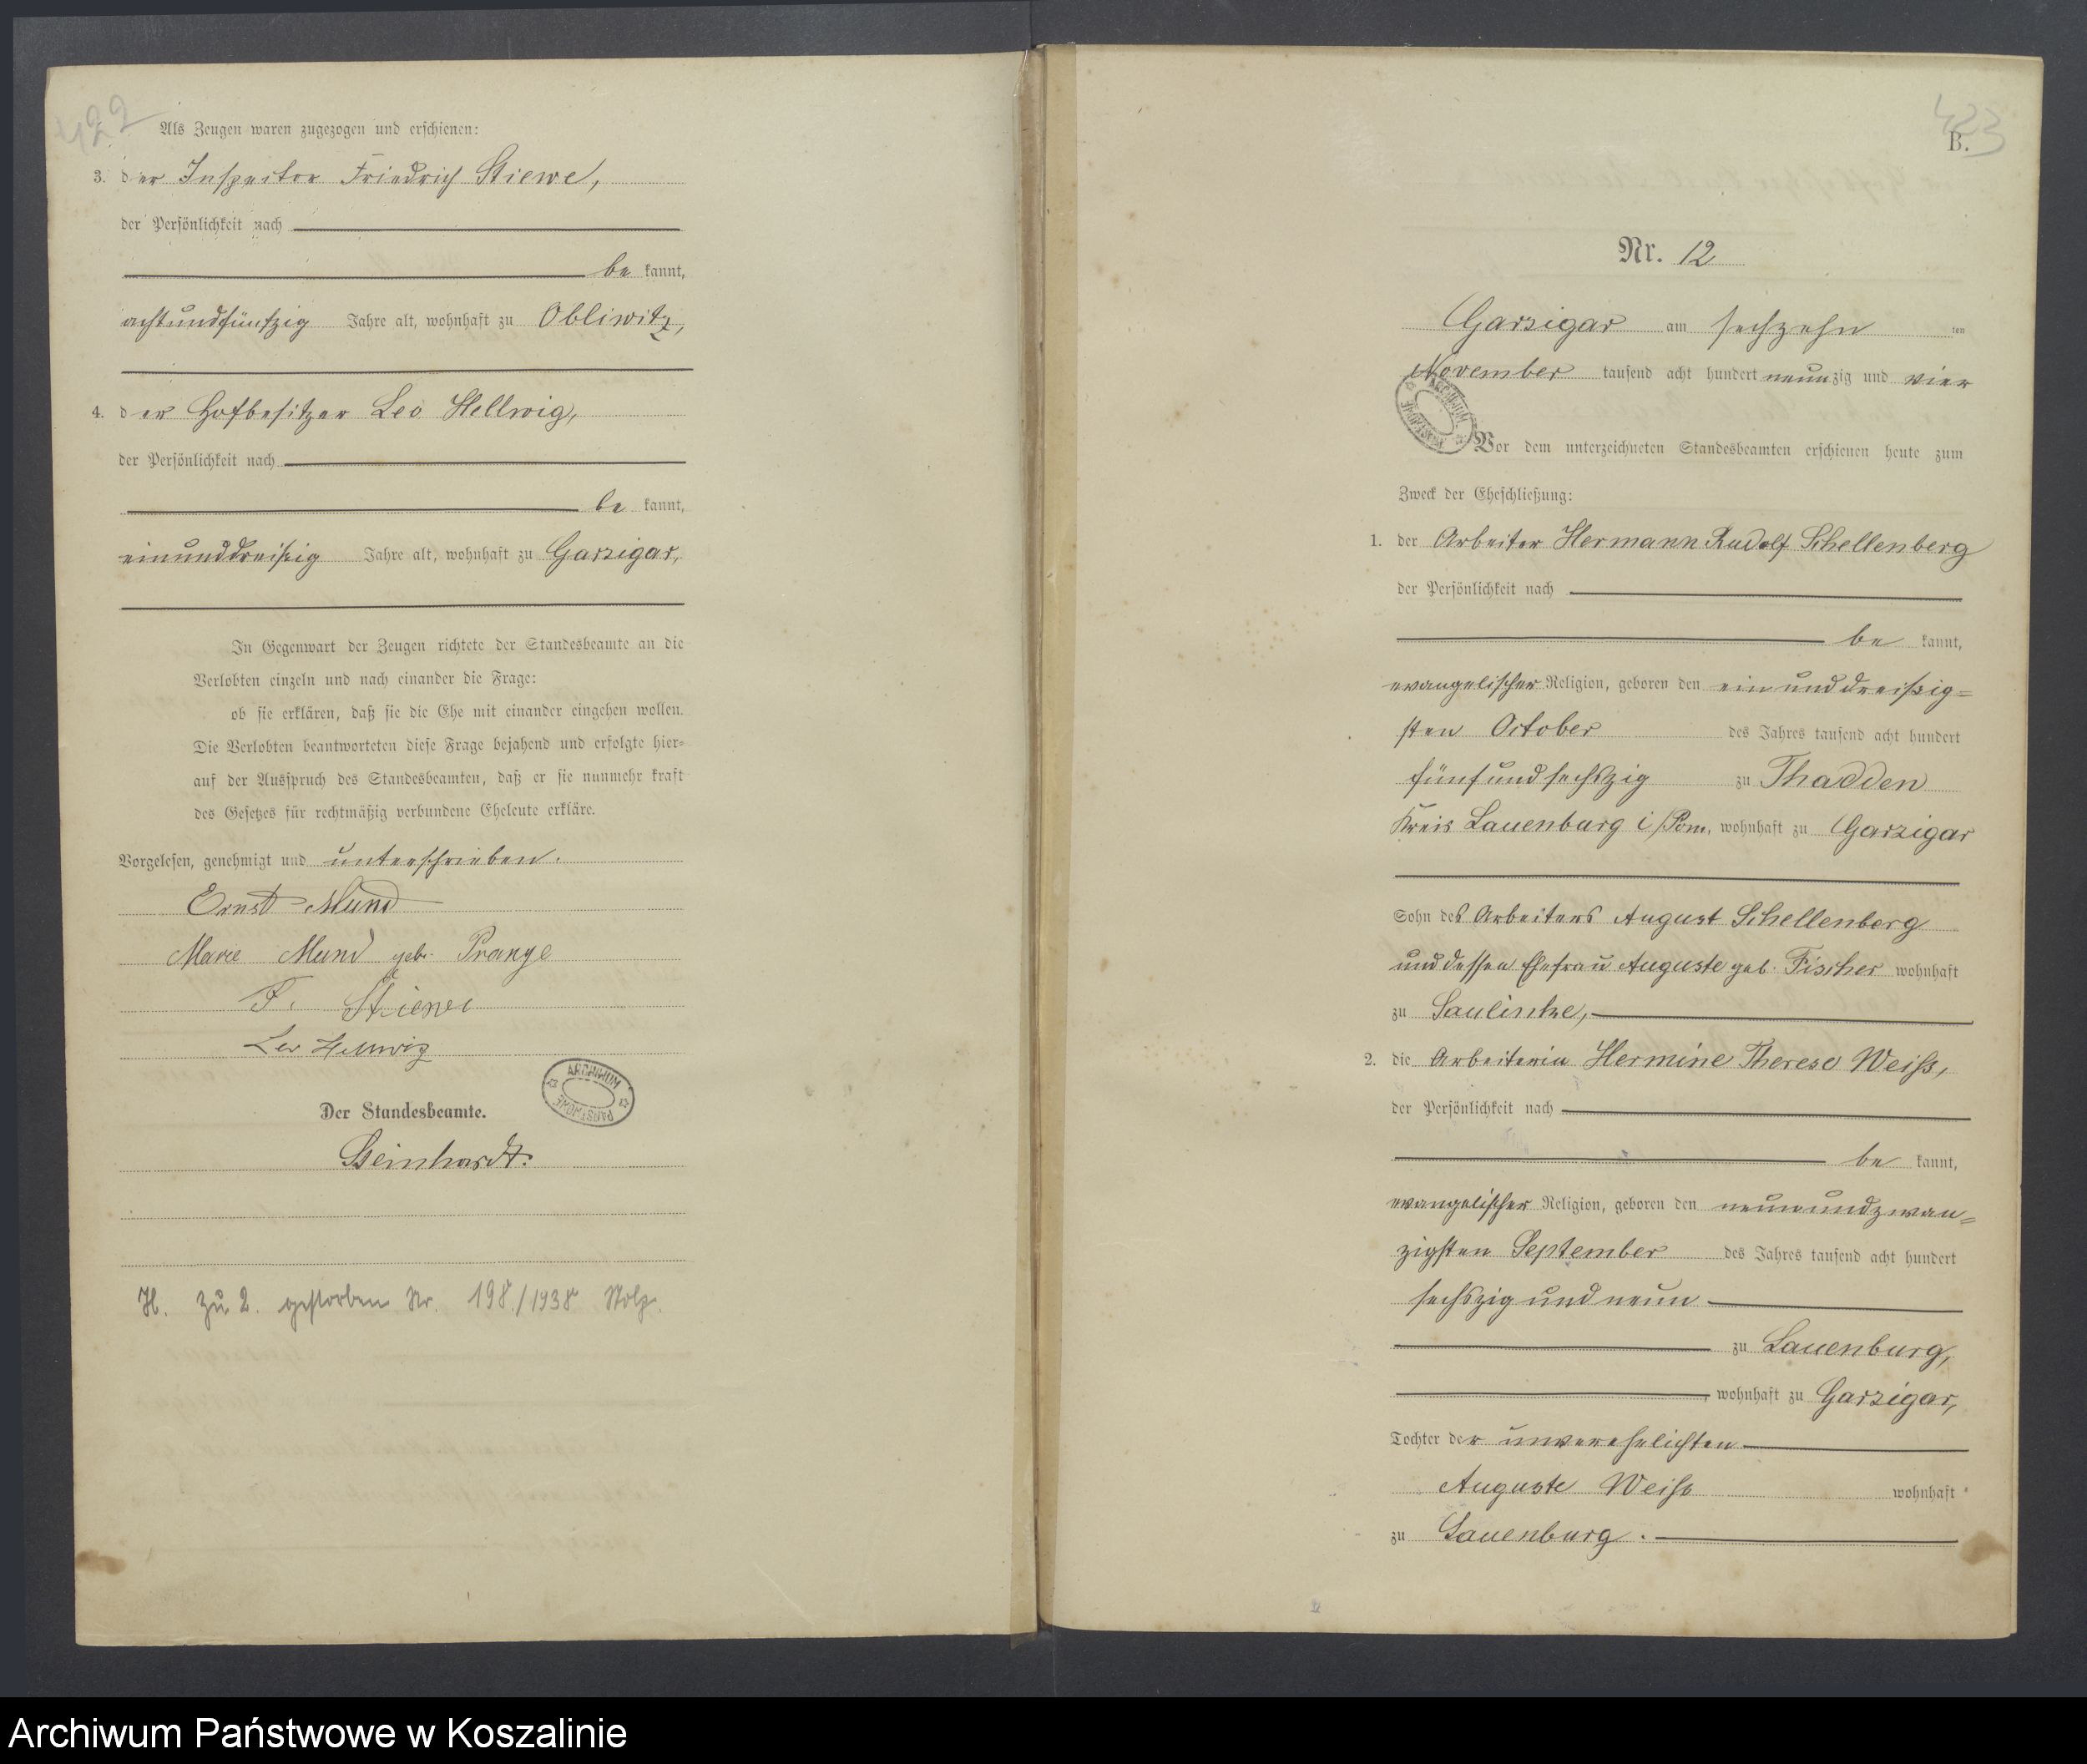 422
Als Zeugen waren zugezogen und erschienen:
3. der Inspector Friedrich Stiewe,
der Persönlichkeit nach
be kannt,
achtundfünfzig Jahre alt, wohnhaft zu Obliwitz,
4. der Hofbesitzer Leo Hellwig,
der Persönlichkeit nach
be kannt,
einunddreißig Jahre alt, wohnhaft zu Garzigar,
In Gegenwart der Zeugen richtete der Standesbeamte an die
Verlobten einzeln und nach einander die Frage:
ob sie erklären, daß sie die Ehe mit einander eingehen wollen.
Die Verlobten beantworteten diese Frage bejahend und erfolgte hier=
auf der Ausspruch des Standesbeamten, daß er sie nunmehr kraft
des Gesetzes für rechtmäßig verbundene Eheleute erkläre.
Vorgelesen, genehmigt und unterschrieben.
Ernst Mund
Marie Mund geb. Prange
F. Stiewe
Leo Hellwig
ARCHIWUM PAŃSTWOWE
Der Standesbeamte.
H. zu 2. gestorben Nr. 198./1938 Stolp.
423
B.
Nr. 12
Garzigar am sechzehn ten
November tausend acht hundert neunzig und vier
ARCHIWUM PAŃSTWOWE
Vor dem unterzeichneten Standesbeamten erschienen heute zum
Zweck der Eheschließung:
1. der Arbeiter Hermann Rudolf Schellenberg
der Persönlichkeit nach
be kannt,
evangelischer Religion, geboren den einunddreißig=
sten October des Jahres tausend acht hundert
fünfundsechszig zu Thadden
Kreis Lauenburg i/Pom, wohnhaft zu Garzigar
Sohn des Arbeiters August Schellenberg
und dessen Ehefrau Auguste geb. Fischer wohnhaft
zu Saulincke,
2. die Arbeiterin Hermine Therese Weiß,
der Persönlichkeit nach
be kannt,
evangelischer Religion, geboren den neunundzwan=
zigsten September des Jahres tausend acht hundert
sechszig und neun
zu Lauenburg,
wohnhaft zu Garzigar,
Tochter der unverehelichten
Auguste Weiß wohnhaft
zu Lauenburg.
Archiwum Państwowe w Koszalinie